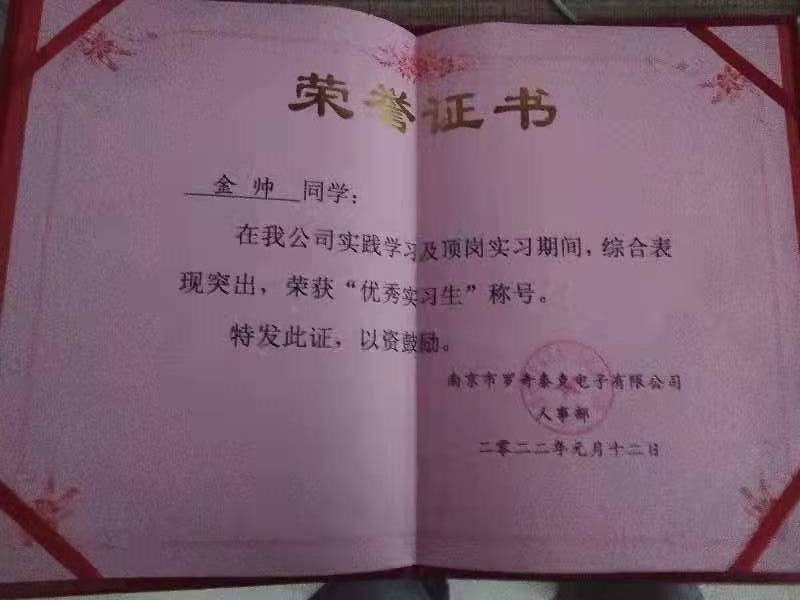 荣誉证书
金帅 同学：
在我公司实践学习及顶岗实习期间，综合表
现突出，荣获“优秀实习生”称号。
特发此证，以资鼓励。
南京市罗奇泰克电子有限公司
人事部
二零二二年元月十二日